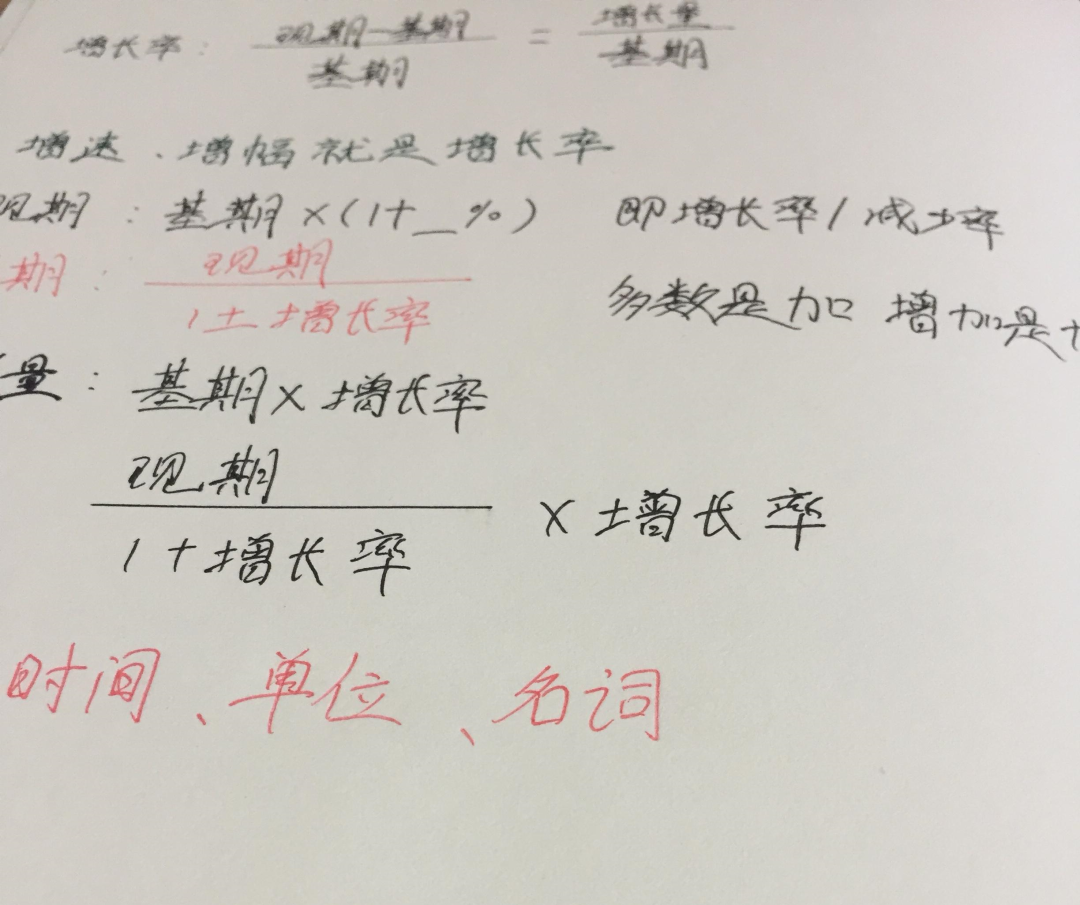 增长率: 现期-基期 / 基期 = 增长量 / 基期
增速、增幅就是增长率
现期: 基期×(1+_%) 即增长率/减少率
期: 现期 / 1±增长率
多数是加 增加是+
量: 基期×增长率
现期 / 1+增长率 ×增长率
时间、单位、名词